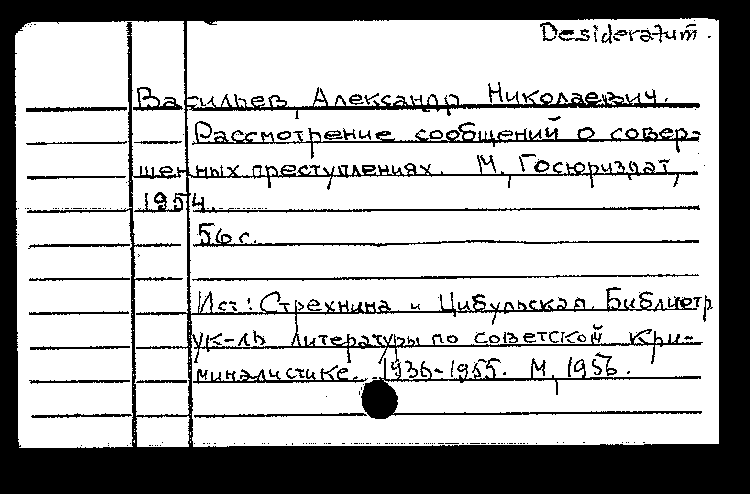 Desideratum.
Васильев, Александр Николаевич.
Рассмотрение сообщений о совер-
шенных преступлениях. М., Госюриздат,
1954.
56 с.
Ист: Стрехнина и Цибульская. Библиогр
ук-ль литературы по советской кри-
миналистике. 1936-1955. М, 1956.